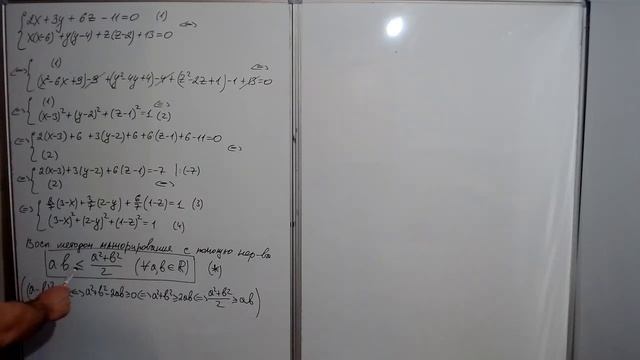 { 2x + 3y + 6z - 11 = 0 (1)
x(x-6) + y(y-4) + z(z-2) + 13 = 0 <=>
<=> { (1)
(x²-6x+9) - 9 + (y²-4y+4) - 4 + (z²-2z+1) - 1 + 13 = 0 <=>
<=> { (1)
(x-3)² + (y-2)² + (z-1)² = 1 (2) <=>
<=> { 2(x-3) + 6 + 3(y-2) + 6 + 6(z-1) + 6 - 11 = 0
(2) <=>
<=> { 2(x-3) + 3(y-2) + 6(z-1) = -7 |:(-7)
(2) <=>
<=> { 2/7 (3-x) + 3/7 (2-y) + 6/7 (1-z) = 1 (3)
(3-x)² + (2-y)² + (1-z)² = 1 (4)
Восп методом мажорирования с помощью нер-ва
ab ≤ (a²+b²)/2 (∀a,b ∈ R) (*)
<=> a²+b²-2ab ≥ 0 <=> a²+b² ≥ 2ab <=> (a²+b²)/2 ≥ ab)